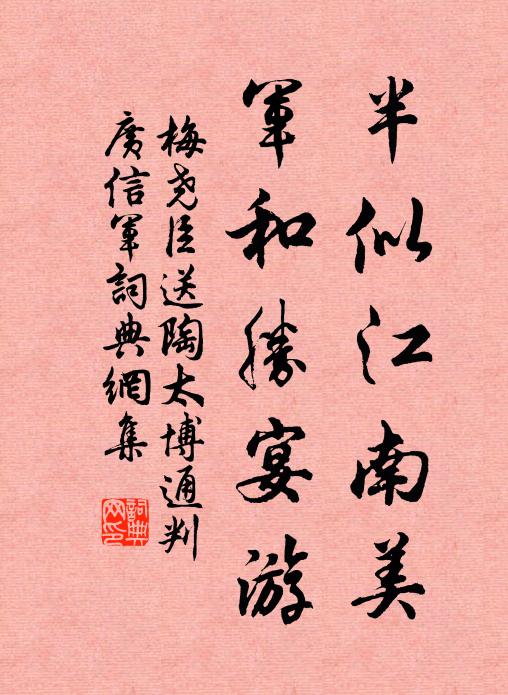 半似江南美
軍和勝宴游
梅尧臣送陶太博通判
廣信軍詞典網集
詞典网印